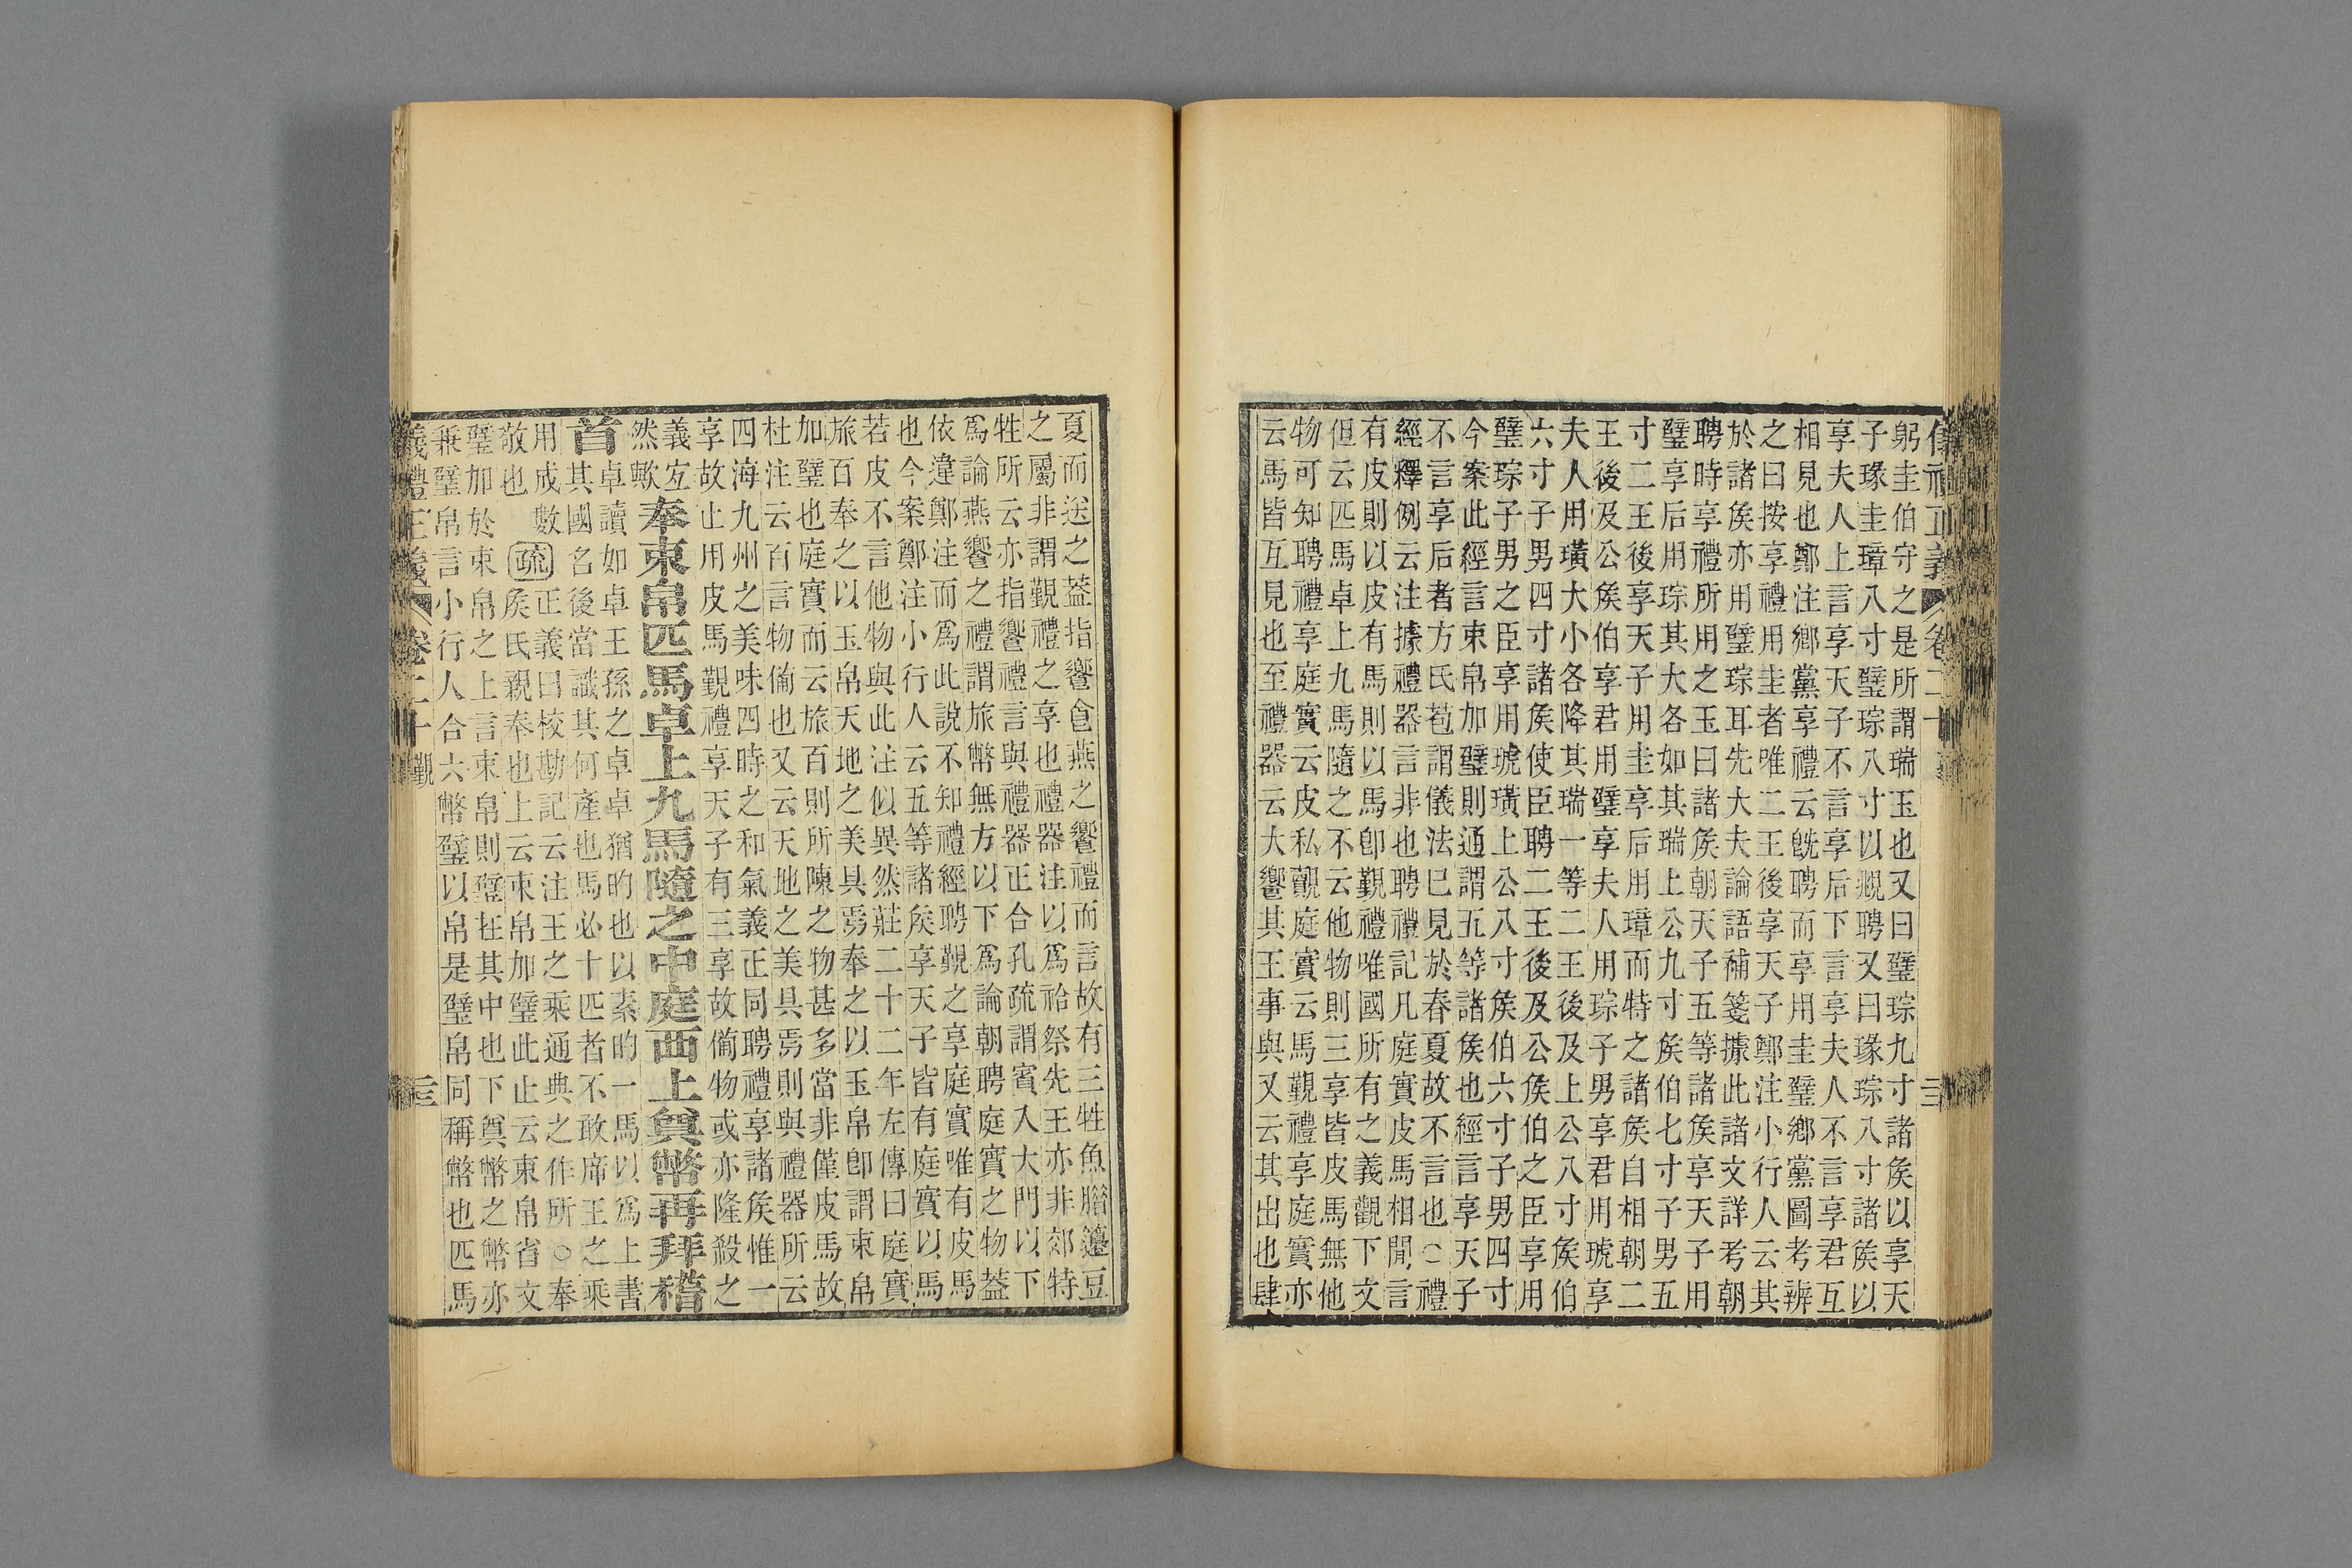 儀禮正義 卷二十 三
躬圭伯守之是所謂瑞玉也又曰璧琮九寸諸侯以享天
子瑑圭璋八寸璧琮八寸以覜聘又曰瑑琮八寸諸侯以
享夫人上言享天子不言享后下言享夫人不言享君互
相見也鄭注鄉黨享禮云旣聘而享用圭璧鄉黨圖考辨
之曰按享禮用圭者唯二王後享天子鄭注小行人云其
於諸侯亦用璧琮耳先大夫論語補箋據此諸文詳考朝
聘時享禮所用之玉曰諸侯朝天子五等諸侯享天子用
璧享后用琮其大各如其瑞上公九寸侯伯七寸子男五
寸二王後享天子用圭享后用璋而特之諸侯自相朝二
王後及公侯伯享君用璧享夫人用琮子男享君用琥享
夫人用璜大小各降其瑞一等二王後及上公八寸侯伯
六寸子男四寸諸侯使臣聘二王後及公侯伯之臣享用
璧琮子男之臣享用琥璜上公八寸侯伯六寸子男四寸
今案此經言束帛加璧則通謂五等諸侯也經言享天子
不言享后者方氏苞謂儀法巳見於春夏故不言也○禮
經釋例云注據禮器言非也聘禮記凡庭實皮馬相閒言
有皮則以皮有馬則以馬卽覲禮唯國所有之義觀下文
但云匹馬卓上九馬隨之不云他物則三享皆皮馬無他
物可知聘禮享庭實云皮私覿庭實云馬覲禮享庭實亦
云馬皆互見也至禮器云大饗其王事與又云其出也肆
夏而送之葢指饗食燕之饗禮而言故有三牲魚腊籩豆
之屬非謂覲禮之享也禮器注以爲祫祭先王亦非郊特
牲所云亦指饗禮言與禮器正合孔疏謂賓入大門以下
爲論燕饗之禮謂旅幣無方以下爲論朝聘庭實之物葢
依違鄭注而爲此說不知禮經聘覲之享庭實唯有皮馬
也今案鄭注小行人云五等諸侯享天子皆有庭實以馬
若皮不言他物與此注似異然莊二十二年左傳曰庭實
旅百奉之以玉帛天地之美具焉奉之以玉帛卽謂束帛
加璧也庭實而云旅百則所陳之物甚多當非僅皮馬故
杜注云百言物備也又云天地之美具焉則與禮器所云
四海九州之美味四時之和氣義正同聘禮享諸侯惟一
享故止用皮馬覲禮享天子有三享故備物或亦隆殺之
義宐
然歟
奉束帛匹馬卓上九馬隨之中庭西上奠幣再拜稽
首
卓讀如卓王孫之卓卓猶的也以素的一馬以爲上書
其國名後當識其何產也馬必十匹者不敢席王之乘
用成數
敬也
疏
正義曰校勘記云注王之乘通典之作所○奉
侯氏親奉也上云束帛加璧此止云束帛省文
璧加於束帛之上言束帛則璧在其中也下奠幣之幣亦
兼璧帛言小行人合六幣璧以帛是璧帛同稱幣也匹馬
儀禮正義 卷二十 覲 三